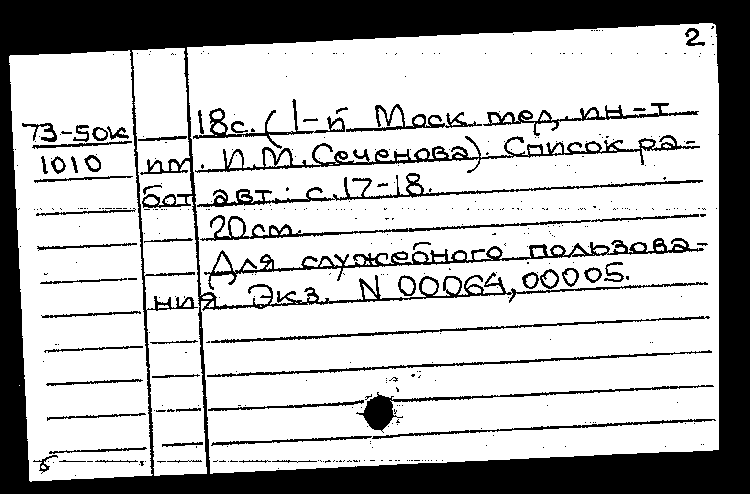 2
73-50к 18с. (1-й Моск. мед. ин-т
1010 им. И.М.Сеченова). Список ра=
бот авт.: с.17-18.
20см.
Для служебного пользова=
ния. Экз. N 00064,00005.